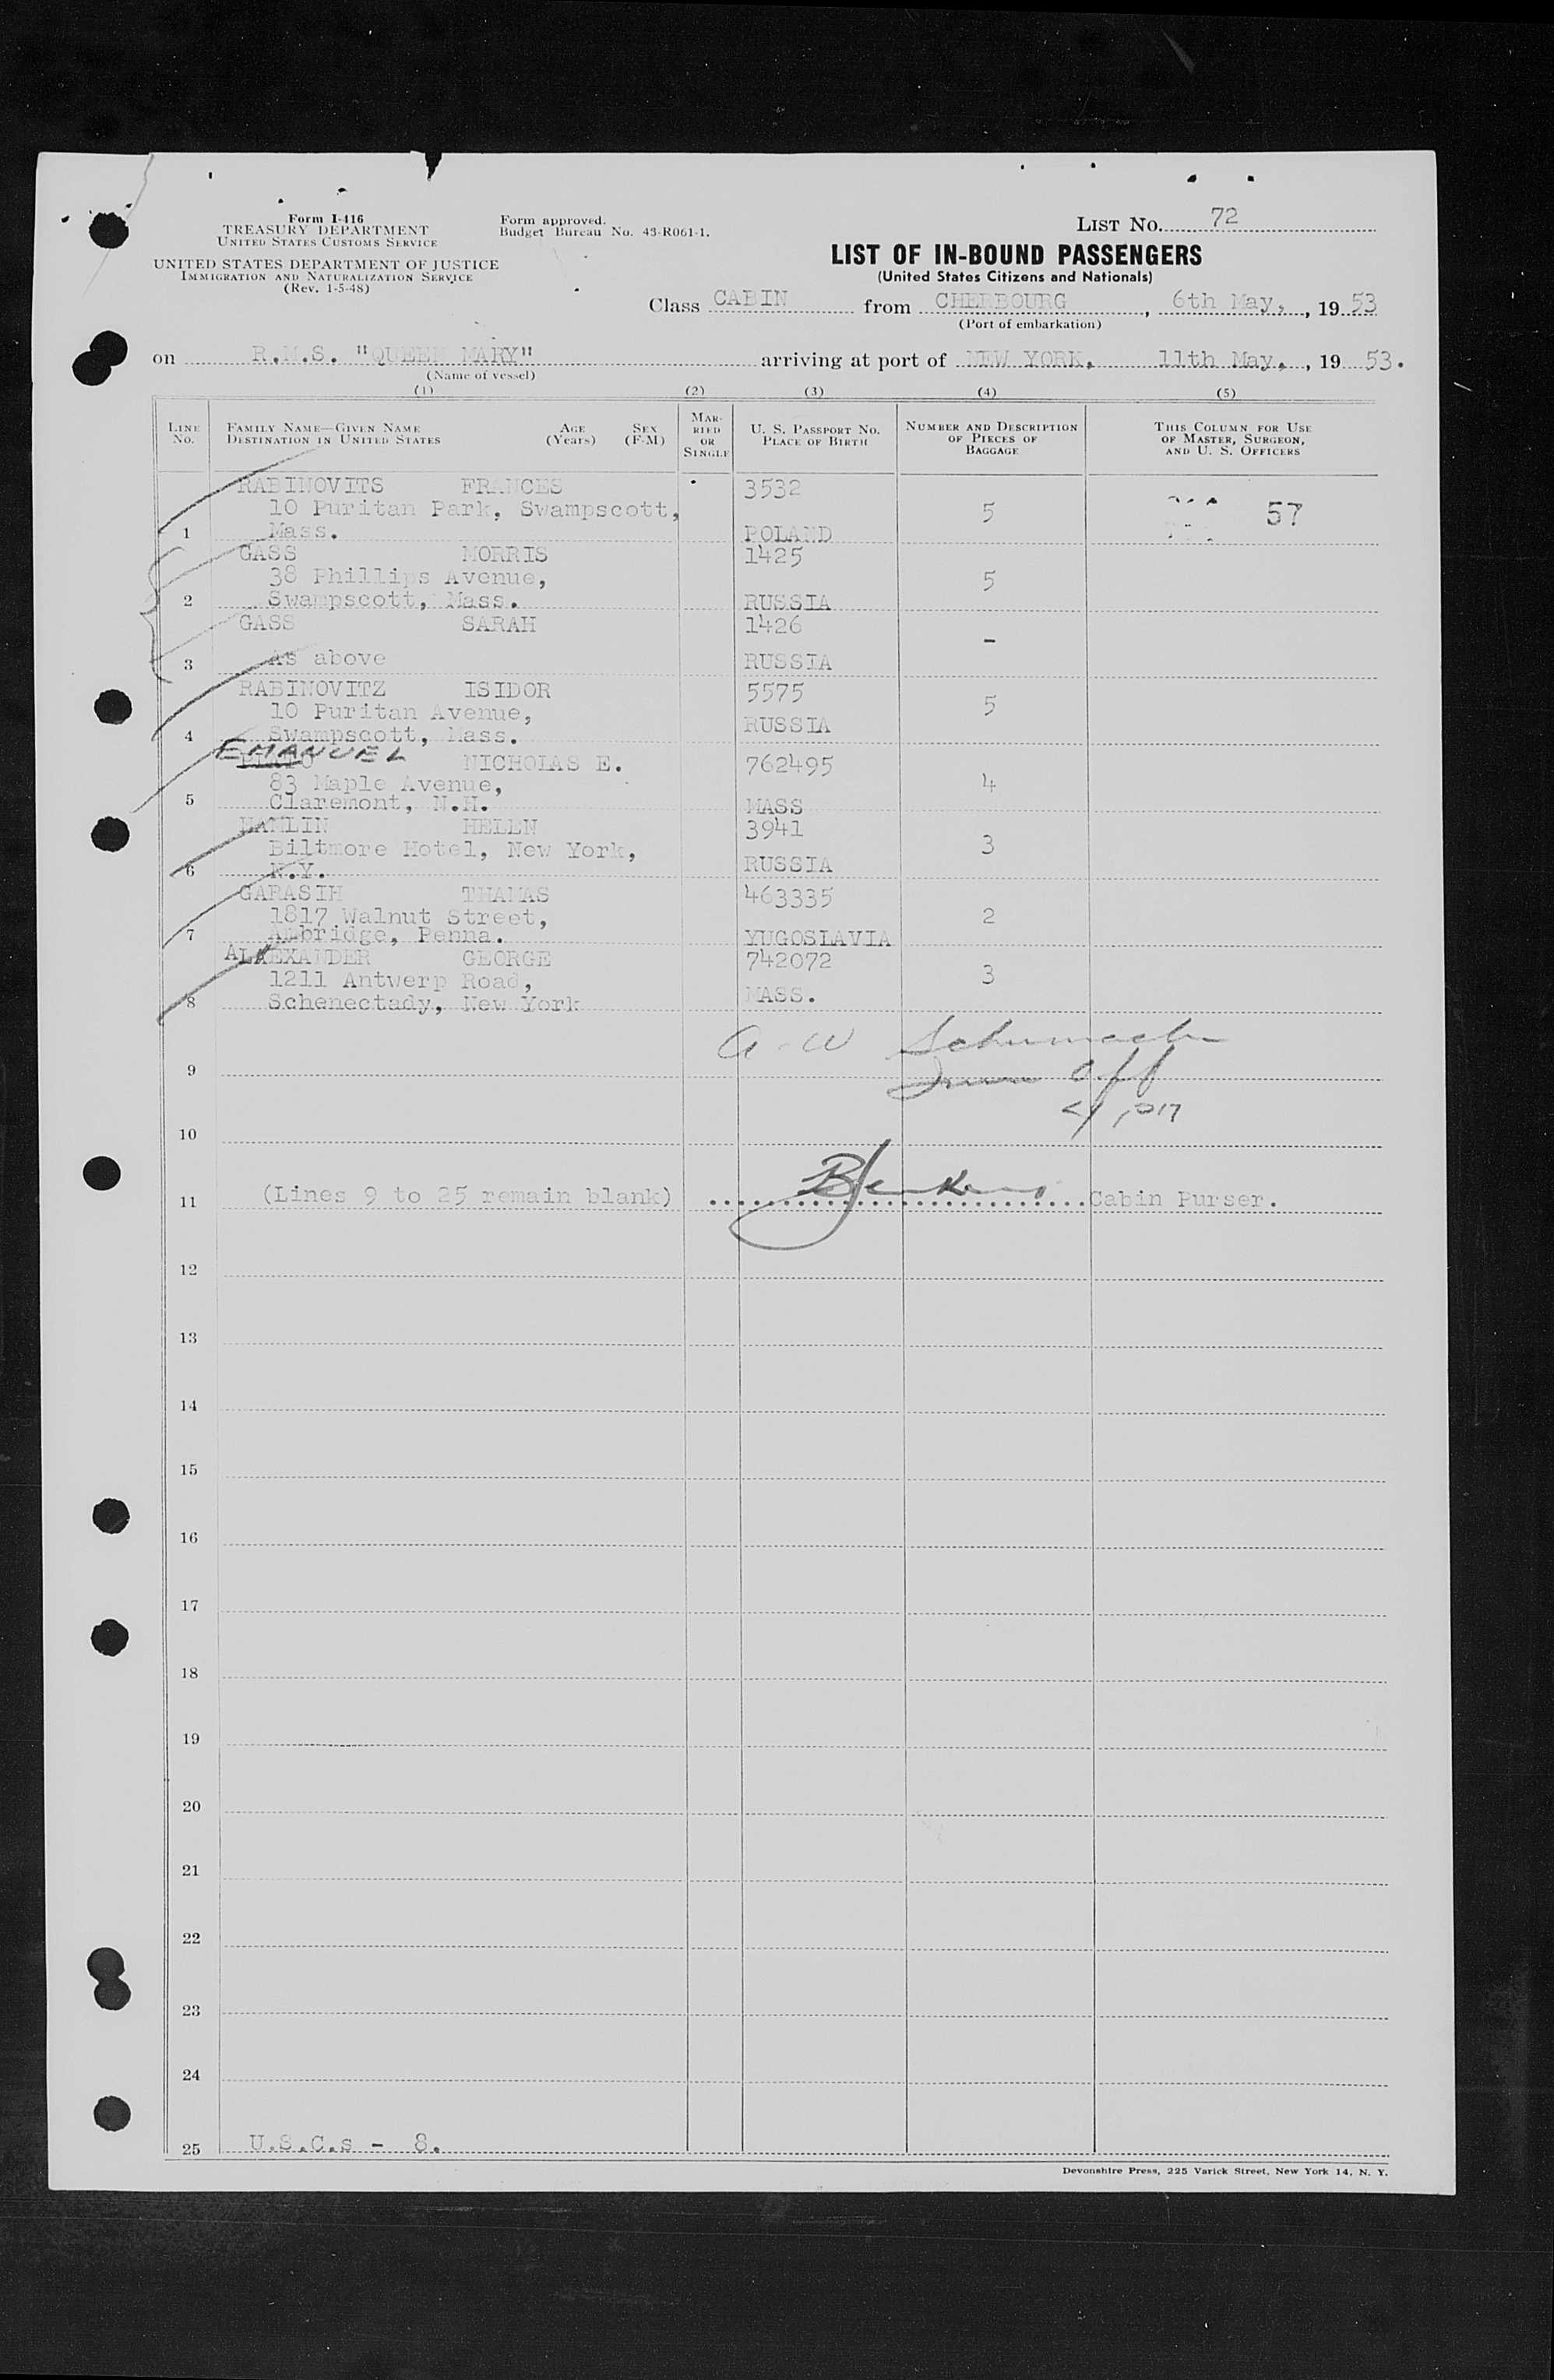 Form I-416
TREASURY DEPARTMENT
UNITED STATES CUSTOMS SERVICE
UNITED STATES DEPARTMENT OF JUSTICE
IMMIGRATION AND NATURALIZATION SERVICE
(Rev. 1-5-48)
Form approved.
Budget Bureau No. 43-R061-1.
LIST No. 72
LIST OF IN-BOUND PASSENGERS
(United States Citizens and Nationals)
Class CABIN from CHERBOURG, 6th May, , 19 53
(Port of embarkation)
on R.M.S. "QUEEN MARY" arriving at port of NEW YORK, 11th May, , 19 53.
(Name of vessel)
(1) (2) (3) (4) (5)
LINE No. FAMILY NAME—GIVEN NAME DESTINATION IN UNITED STATES AGE (Years) SEX (F-M) MARRIED OR SINGLE U. S. PASSPORT NO. PLACE OF BIRTH NUMBER AND DESCRIPTION OF PIECES OF BAGGAGE THIS COLUMN FOR USE OF MASTER, SURGEON, AND U. S. OFFICERS
RABINOVITS FRANCES 3532
10 Puritan Park, Swampscott, 5 57
1 Mass. POLAND
GASS MORRIS 1425
38 Phillips Avenue, 5
2 Swampscott, Mass. RUSSIA
GASS SARAH 1426
-
3 As above RUSSIA
RABINOVITZ ISIDOR 5575
10 Puritan Avenue, 5
4 Swampscott, Mass. RUSSIA
EMANUEL
NICHOLAS E. 762495
83 Maple Avenue, 4
5 Claremont, N.H. MASS
HAMLIN HELEN 3941
Biltmore Hotel, New York, 3
6 N.Y. RUSSIA
GAPASIH THAMAS 463335
1817 Walnut Street, 2
7 Ambridge, Penna. YUGOSLAVIA
ALEXANDER GEORGE 742072
1211 Antwerp Road, 3
8 Schenectady, New York MASS.
A W Schumacher
9
Off
10
11 (Lines 9 to 25 remain blank) Cabin Purser.
12
13
14
15
16
17
18
19
20
21
22
23
24
25 U.S.C.s - 8.
Devonshire Press, 225 Varick Street, New York 14, N. Y.